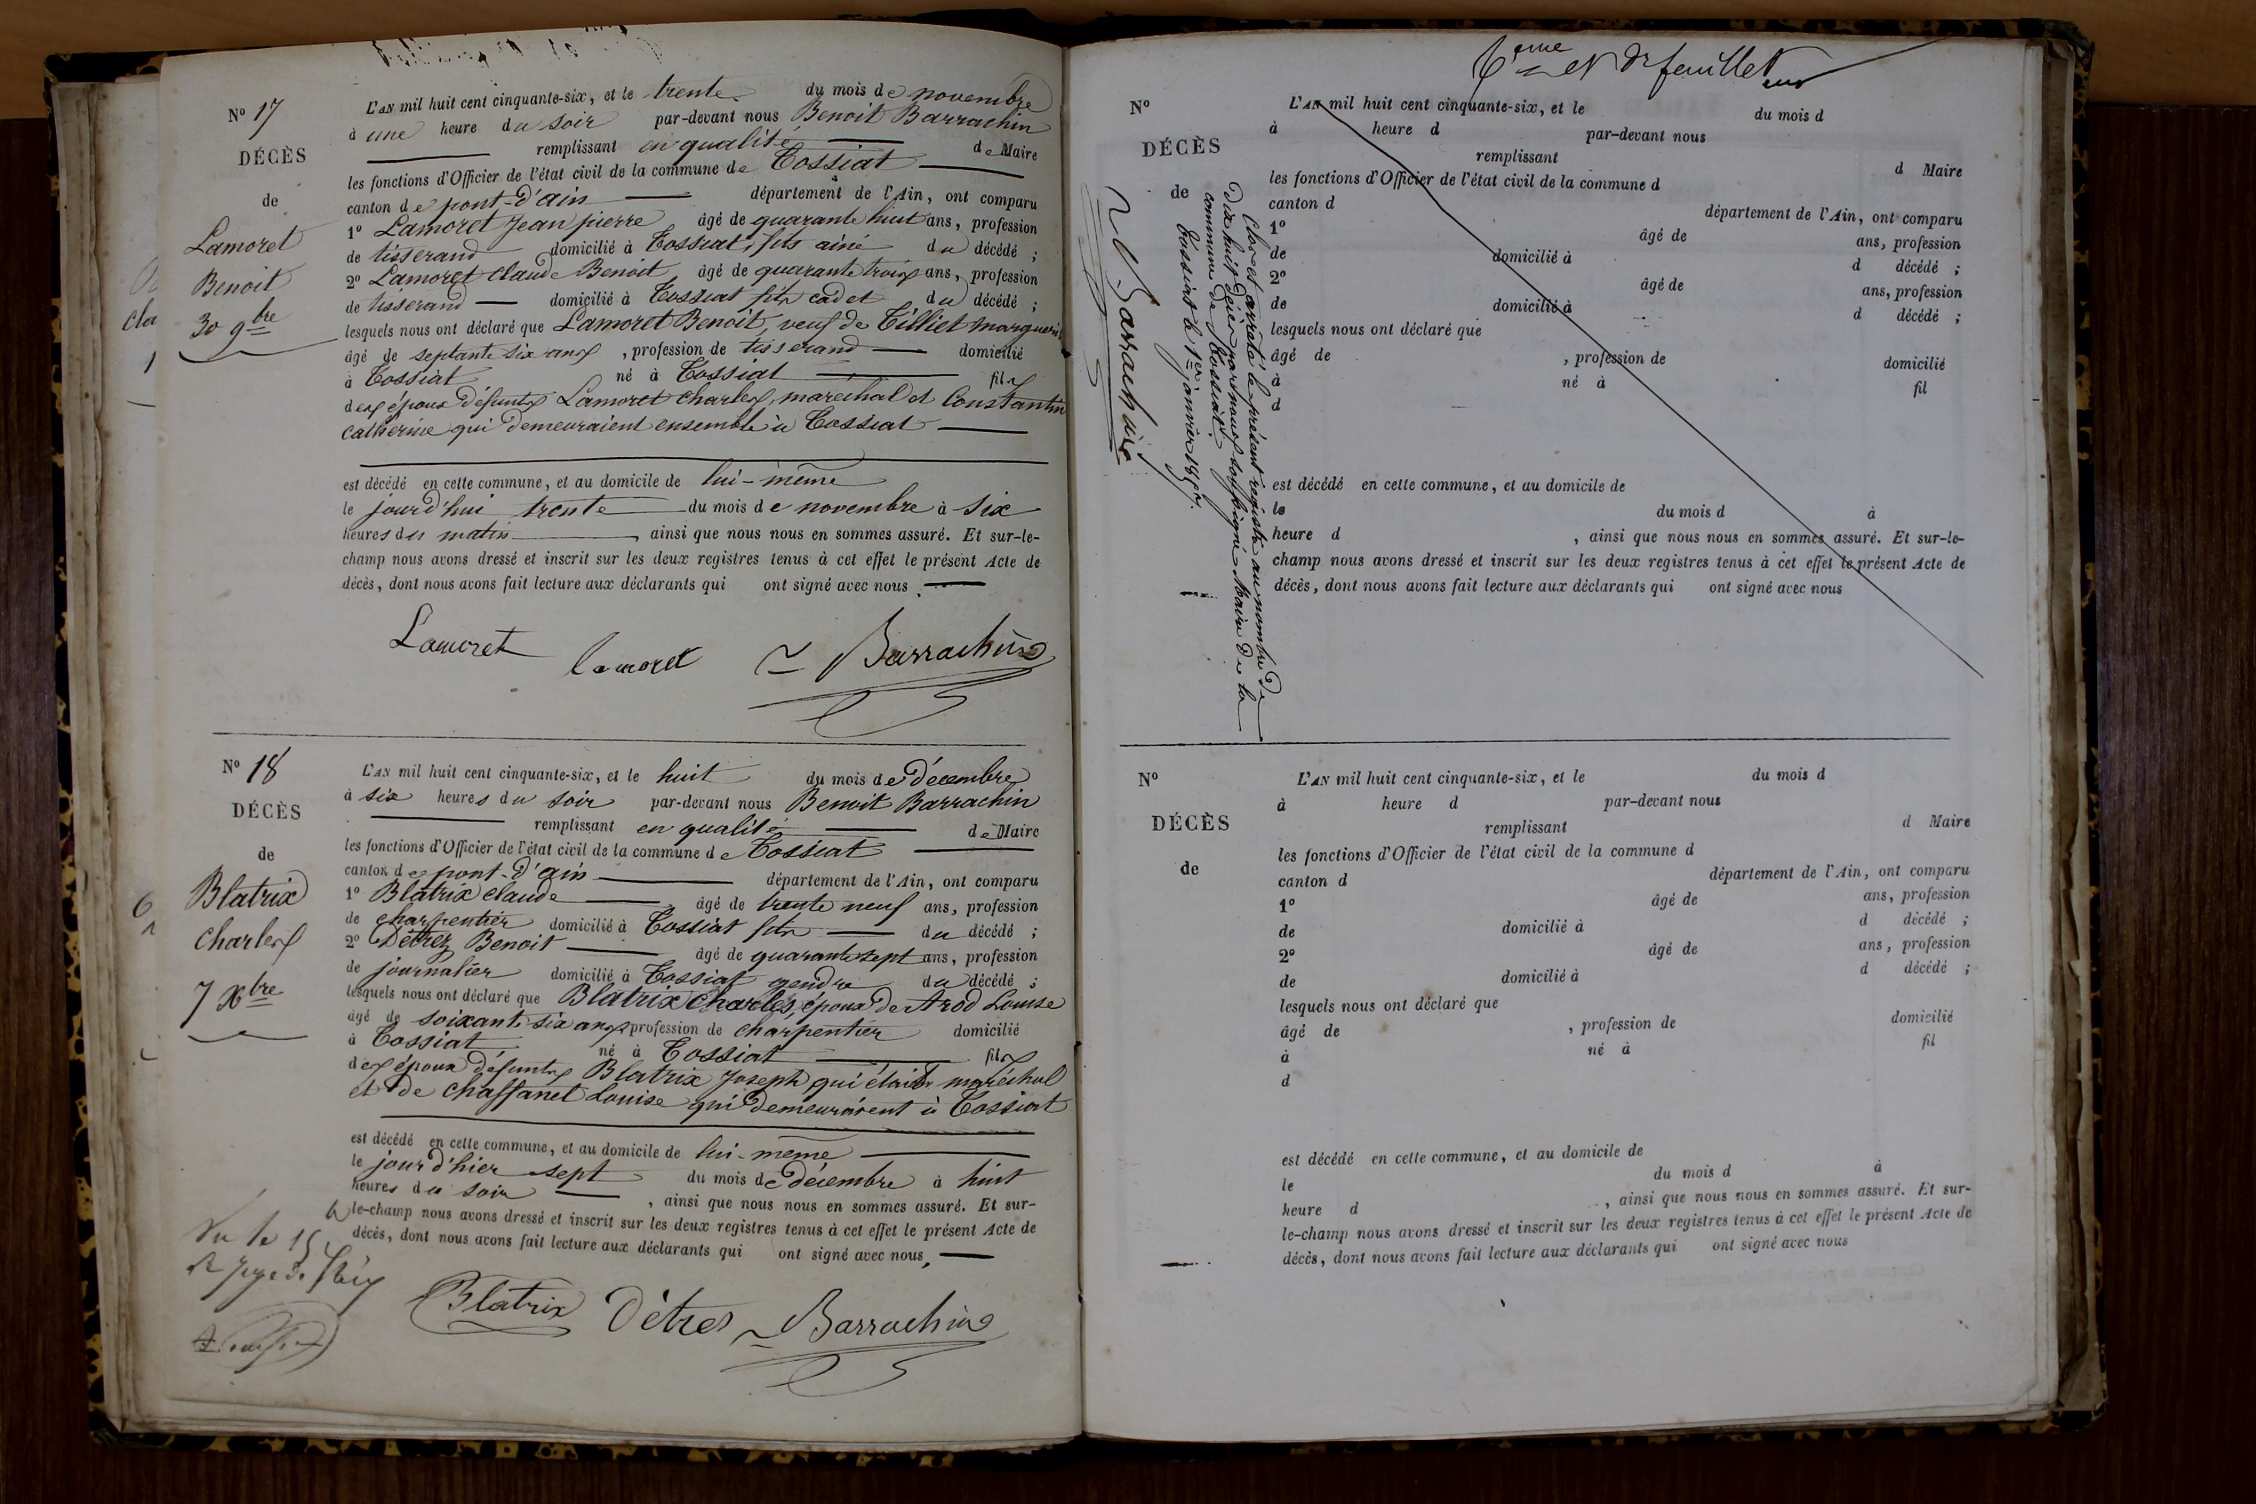 N° 17
DÉCÈS
de
Lamoret
Benoit
30 9bre
L'AN mil huit cent cinquante-six, et le trente du mois de novembre
à une heure du soir par-devant nous Benoit Barrachin
remplissant en qualité de Maire
les fonctions d'Officier de l'état civil de la commune de Tossiat
canton de pont-d'ain département de l'Ain, ont comparu
1° Lamoret Jean pierre âgé de quarante huit ans, profession
de tisserand domicilié à Tossiat, fils ainé du décédé ;
2° Lamoret claude Benoit âgé de quarante trois ans, profession
de tisserand domicilié à Tossiat fils cadet du décédé ;
lesquels nous ont déclaré que Lamoret Benoit, veuf de Tilliet marguerite
âgé de septante six ans, profession de tisserand domicilié
à Tossiat né à Tossiat fils
des époux défunts Lamoret charles, maréchal et Constantin
catherine qui demeuraient ensemble à Tossiat
est décédé en cette commune, et au domicile de lui-même
le jourd'hui trente du mois de novembre à six
heures du matin, ainsi que nous nous en sommes assuré. Et sur-le-
champ nous avons dressé et inscrit sur les deux registres tenus à cet effet le présent Acte de
décès, dont nous avons fait lecture aux déclarants qui ont signé avec nous.
Lamoret lamoret Barrachin
N° 18
DÉCÈS
de
Blatrix
charles
7 Xbre
L'AN mil huit cent cinquante-six, et le huit du mois de décembre
à six heures du soir par-devant nous Benoit Barrachin
remplissant en qualité de Maire
les fonctions d'Officier de l'état civil de la commune de Tossiat
canton de pont-d'ain département de l'Ain, ont comparu
1° Blatrix claude âgé de trente neuf ans, profession
de charpentier domicilié à Tossiat fils du décédé ;
2° Détrez Benoit âgé de quarante sept ans, profession
de journalier domicilié à Tossiat gendre du décédé ;
lesquels nous ont déclaré que Blatrix charles, époux de Arod Louise
âgé de soixante six ans profession de charpentier domicilié
à Tossiat né à Tossiat fils
des époux défunts Blatrix Joseph qui était maréchal
et de chaffanet Louise qui demeuraient à Tossiat
est décédé en cette commune, et au domicile de lui-même
le jour d'hier sept du mois de décembre à huit
heures du soir, ainsi que nous nous en sommes assuré. Et sur-
le-champ nous avons dressé et inscrit sur les deux registres tenus à cet effet le présent Acte de
décès, dont nous avons fait lecture aux déclarants qui ont signé avec nous.
Vu le
Blatrix Détres Barrachin
6eme et dr feuillet
N°
DÉCÈS
de
Clos et arrêté le présent registre au nombre de
dix huit décès par nous soussigné Maire de la
commune de Tossiat.
Tossiat le 1er janvier 1857.
Barrachin
L'AN mil huit cent cinquante-six, et le du mois d
à heure d par-devant nous
remplissant d Maire
les fonctions d'Officier de l'état civil de la commune d
canton d département de l'Ain, ont comparu
1° âgé de ans, profession
de domicilié à d décédé ;
2° âgé de ans, profession
de domicilié à d décédé ;
lesquels nous ont déclaré que
âgé de , profession de domicilié
à né à fil
d
est décédé en cette commune, et au domicile de
le du mois d à
heure d , ainsi que nous nous en sommes assuré. Et sur-le-
champ nous avons dressé et inscrit sur les deux registres tenus à cet effet le présent Acte de
décès, dont nous avons fait lecture aux déclarants qui ont signé avec nous
N°
DÉCÈS
de
L'AN mil huit cent cinquante-six, et le du mois d
à heure d par-devant nous
remplissant d Maire
les fonctions d'Officier de l'état civil de la commune d
canton d département de l'Ain, ont comparu
1° âgé de ans, profession
de domicilié à d décédé ;
2° âgé de ans, profession
de domicilié à d décédé ;
lesquels nous ont déclaré que
âgé de , profession de domicilié
à né à fil
d
est décédé en cette commune, et au domicile de
le du mois d à
heure d , ainsi que nous nous en sommes assuré. Et sur-
le-champ nous avons dressé et inscrit sur les deux registres tenus à cet effet le présent Acte de
décès, dont nous avons fait lecture aux déclarants qui ont signé avec nous